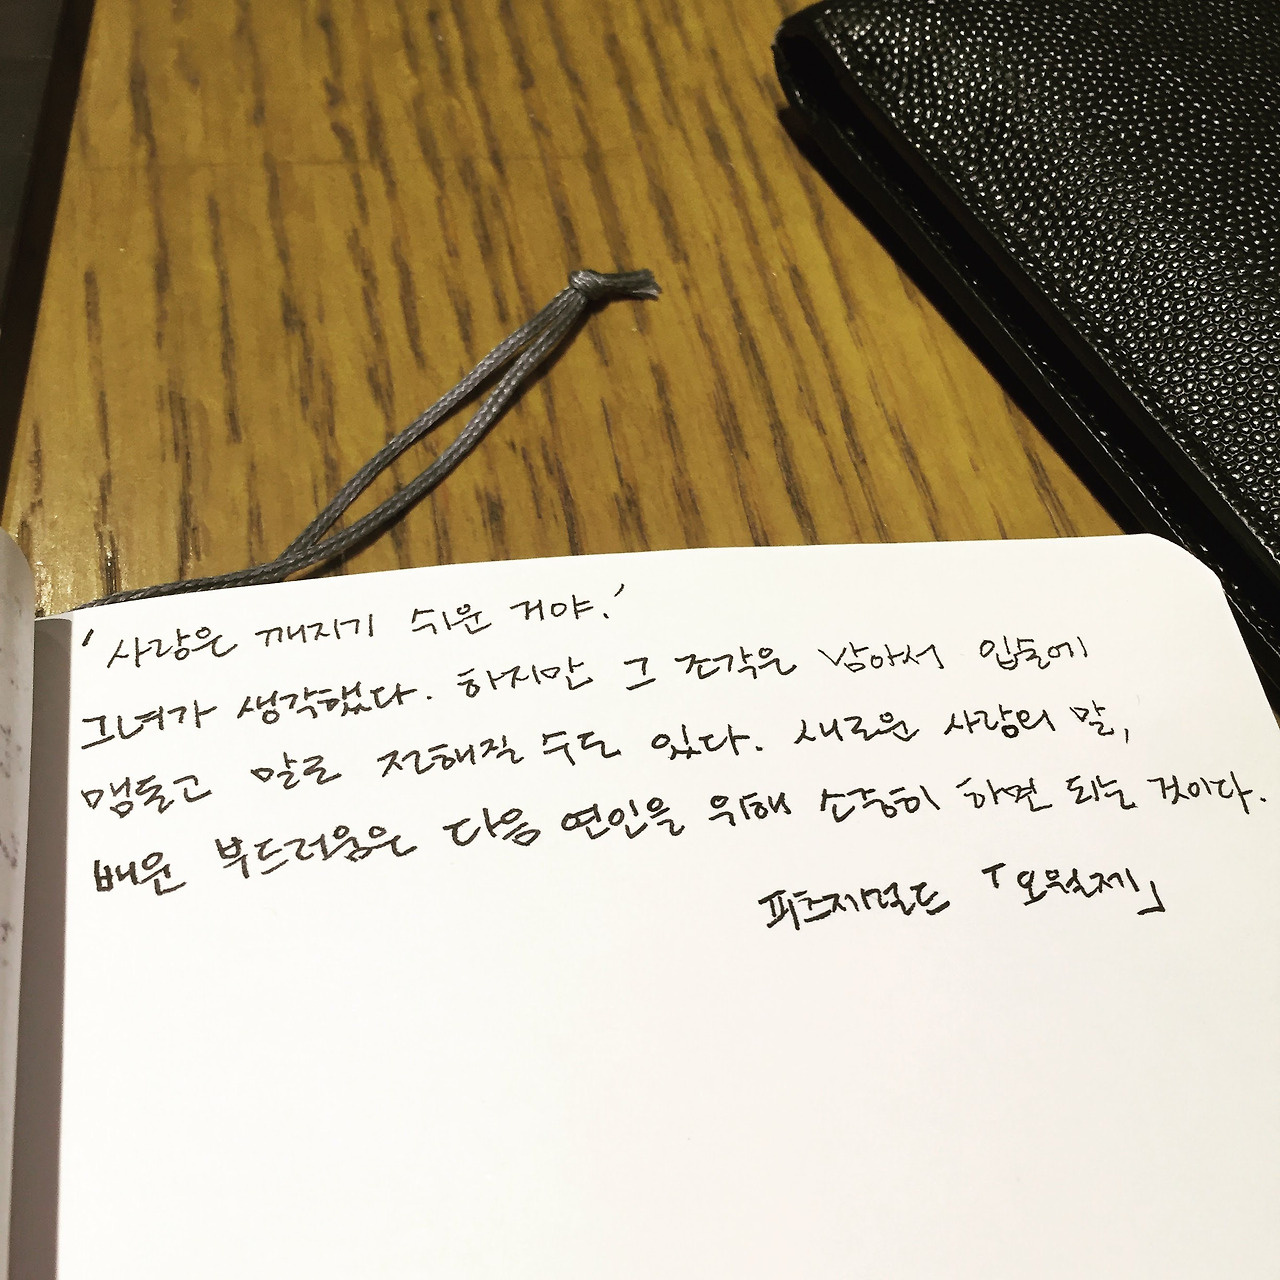 '사랑은 깨지기 쉬운 거야.'
그녀가 생각했다. 하지만 그 조각은 남아서 입술에
맴돌고 말로 전해질 수도 있다. 새로운 사랑의 말,
배운 부드러움은 다음 연인을 위해 소중히 하면 되는 것이다.
피츠제럴드 「오월제」